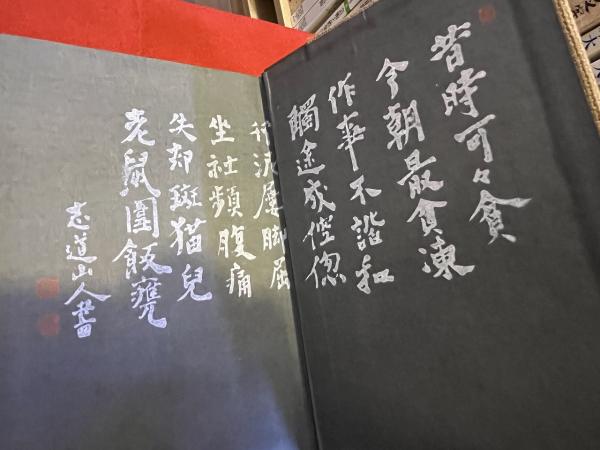 昔時可々貧
今朝最貧凍
作事不諧和
觸途成倥偬
行泥屢脚屈
坐社頻腹痛
失却斑猫兒
老鼠圍飯甕
志道山人